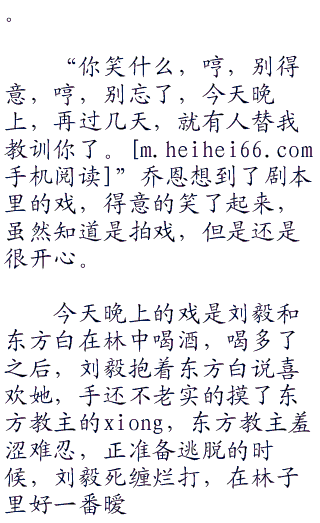 。
“你笑什么，哼，别得
意，哼，别忘了，今天晚
上，再过几天，就有人替我
教训你了。[m.heihei66.com
手机阅读]”乔恩想到了剧本
里的戏，得意的笑了起来，
虽然知道是拍戏，但是还是
很开心。
今天晚上的戏是刘毅和
东方白在林中喝酒，喝多了
之后，刘毅抱着东方白说喜
欢她，手还不老实的摸了东
方教主的xiong，东方教主羞
涩难忍，正准备逃脱的时
候，刘毅死缠烂打，在林子
里好一番暧